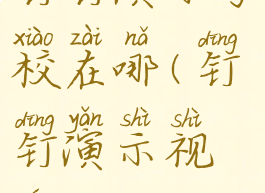 xiào zài nǎ dīng
校在哪(钉
dīng yǎn shì shì
钉演示视